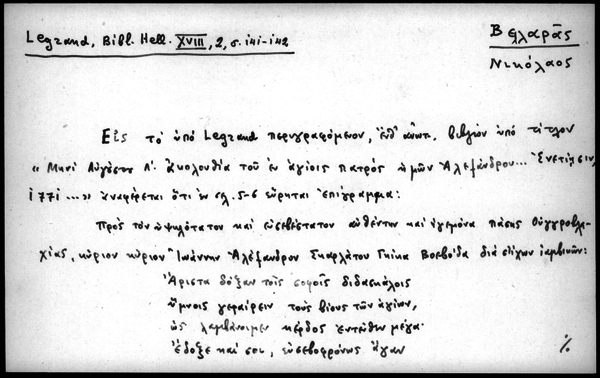 Legrand, Bibl. Hell. XVIII, 2, σ. 141-142
Βελλαρᾶς
Νικόλαος
Εἰς τὸ ὑπὸ Legrand περιγραφόμενον, ἐπ' βιβλίον ὑπὸ τίτλον
« Μηνὶ Αὐγούστῳ Λ'. Ἀκολουθία τοῦ ἐν ἁγίοις πατρὸς ἡμῶν Ἀλεξάνδρου... Ἐνετίῃσιν,
1771 ...» ἀναφέρεται ὅτι ἐν σελ. 5-6 εὕρηται ἐπίγραμμα:
Πρὸς τὸν ὑψηλότατον καὶ εὐσεβέστατον αὐθέντην καὶ ἡγεμόνα πάσης Οὐγγροβλα-
χίας, κύριον κύριον Ἰωάννην Ἀλέξανδρον Σκαρλάτου Γκίκα Βοεβόδα διὰ στίχων ἰαμβικῶν:
Ἄριστα δόξαν τοῖς σοφοῖς διδασκάλοις
ὕμνοις γεραίρειν τοὺς βίους τῶν ἁγίων,
ὡς λαμβάνοιμεν κέρδος ἐντεῦθεν μέγα·
Ἔδοξε καὶ σοι, εὐσεβοφρόνως ἄγαν
·/.